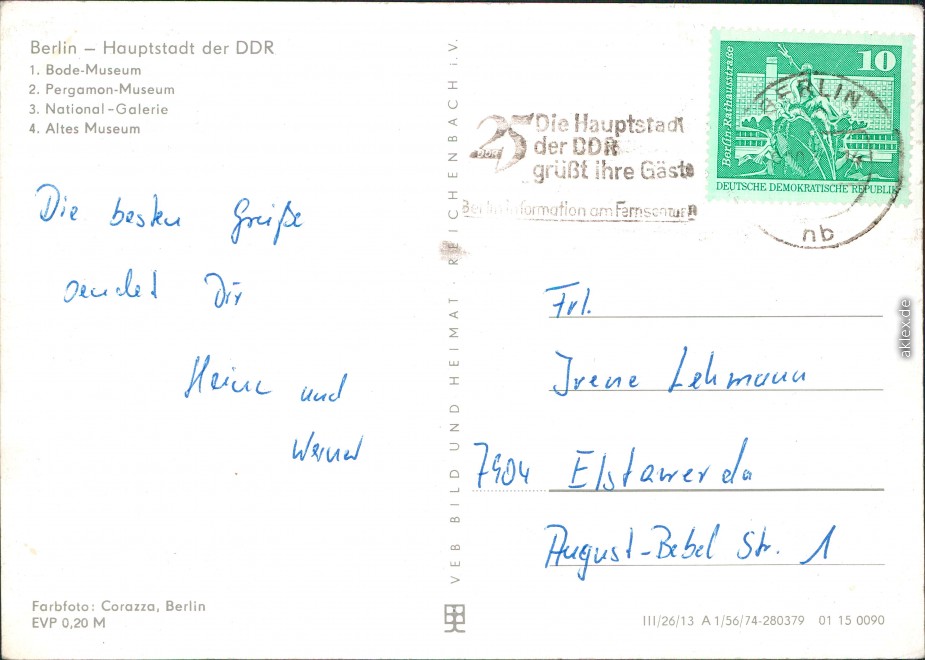 Berlin – Hauptstadt der DDR
1. Bode-Museum
2. Pergamon-Museum
3. National-Galerie
4. Altes Museum
Die besten Grüße
sendet Dir
Heinz und
Werner
Farbfoto: Corazza, Berlin
EVP 0,20 M
VEB BILD UND HEIMAT · REICHENBACH i.V.
25
DDR
Die Hauptstadt
der DDR
grüßt ihre Gäste
Berlin-Information am Fernsehturm
10
Berlin Rathausstraße
DEUTSCHE DEMOKRATISCHE REPUBLIK
BERLIN
nb
Frl.
Irene Lehmann
7904 Elstawerda
August-Bebel Str. 1
III/26/13 A 1/56/74-280379 01 15 0090
aklex.de